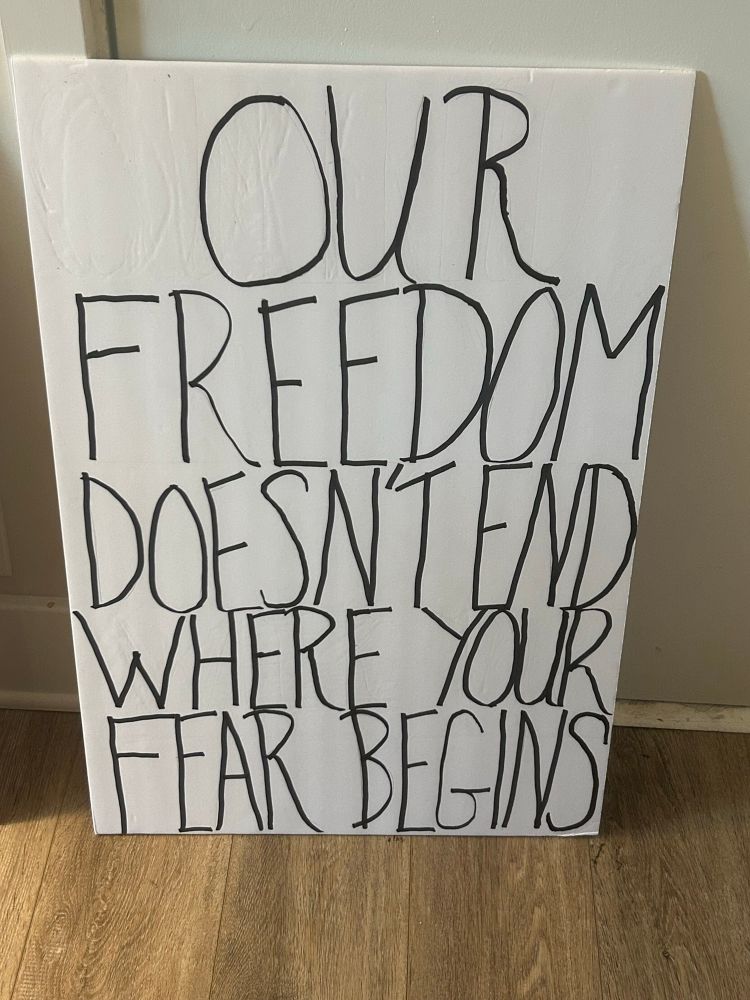 OUR
FREEDOM
DOESN'T END
WHERE YOUR
FEAR BEGINS